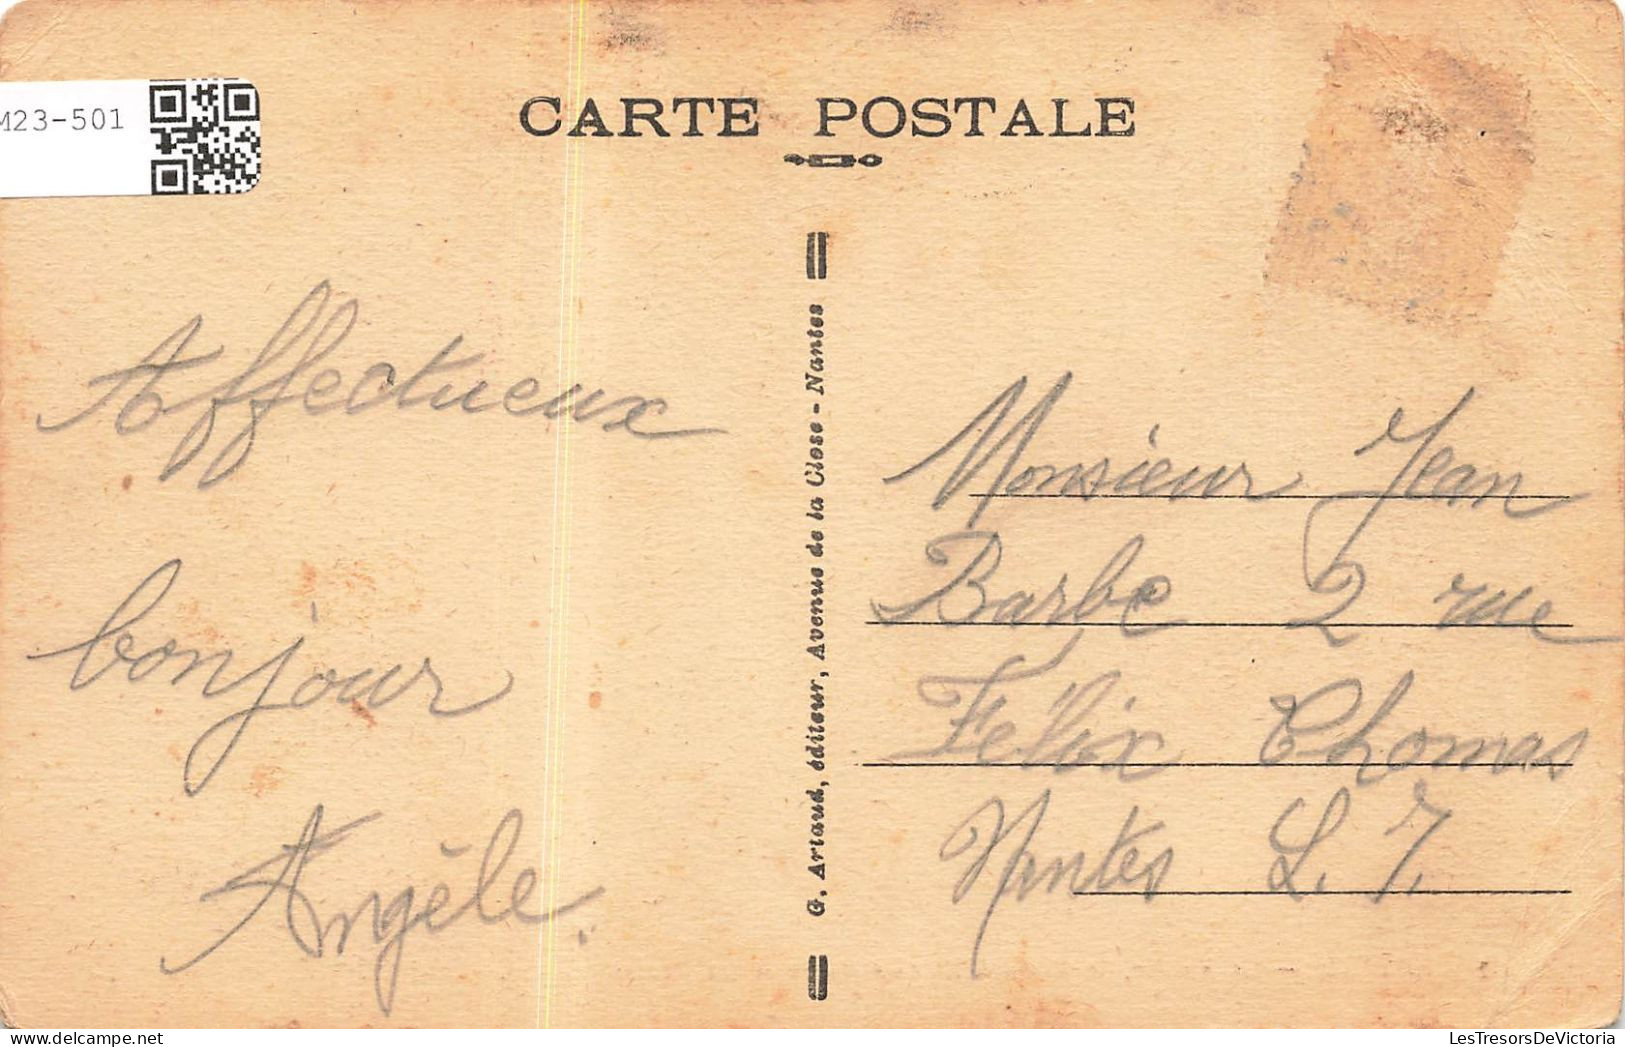 M23-501
CARTE POSTALE
Affectueux
bonjour
Angèle.
G. Artaud, éditeur, Avenue de la Close - Nantes
Monsieur Jean
Barbe 2 rue
Félix Thomas
Nantes L. I.
LesTresorsDeVictoria